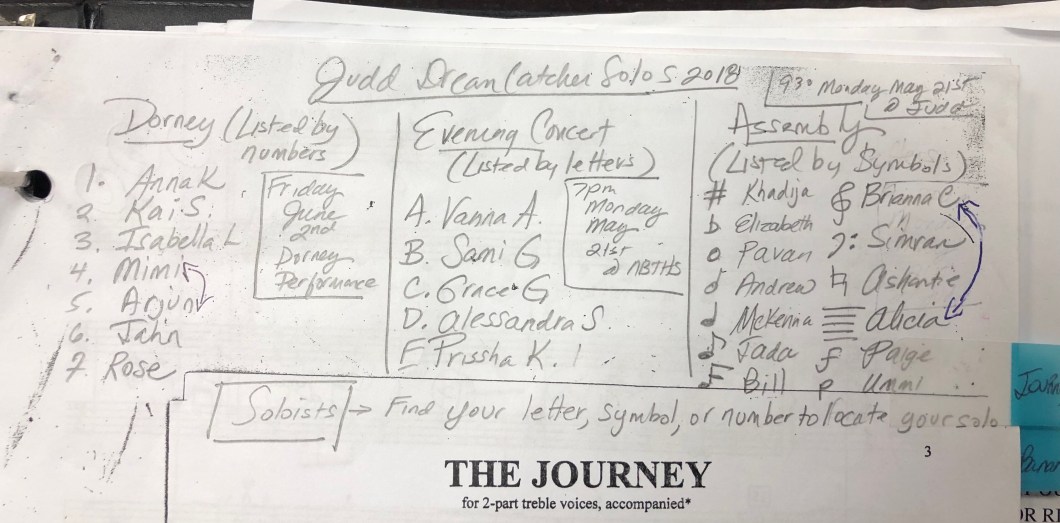 Judd Dream Catcher Solos 2018
930 Monday May 21st
@ Judd
Dorney (Listed by
numbers)
1. Anna K
2. Kai S.
3. Isabella L
4. Mimi
5. Arjun
6. Jahn
7. Rose
Friday
June
2nd
Dorney
Performance
Evening Concert
(Listed by letters)
A. Vanna A.
B. Sami G
C. Grace G
D. Alessandra S.
E Prissha K.
7pm
Monday
May
21st
@ NBTHS
Assembly
(Listed by Symbols)
# Khadija 𝄞 Brianna C
b Elizabeth
o Pavan 𝄢 Simran
Andrew ♮ Ashantie
♩ McKenna Alicia
♪ Jada f Paige
♫ Bill p Ummi
Soloists → Find your letter, symbol, or number to locate your solo
3
THE JOURNEY
for 2-part treble voices, accompanied*